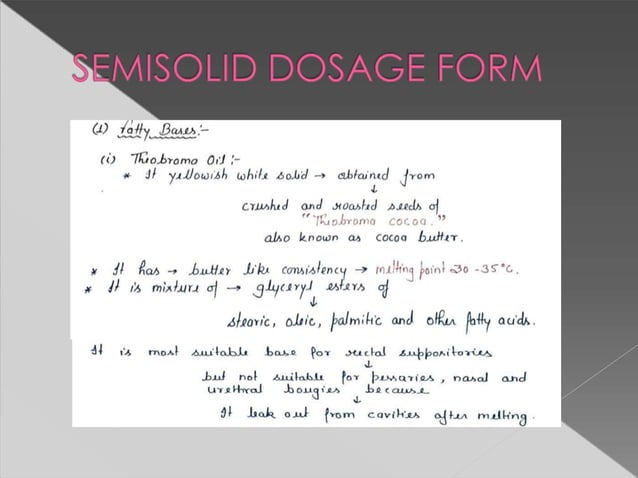 SEMISOLID DOSAGE FORM
(1) Fatty Bases:-
(i) Thiobroma Oil :-
* It yellowish white solid → obtained from
↓
crushed and roasted seeds of
"Thiobroma cocoa."
also known as cocoa butter.
* It has → butter like consistency → melting point 30-35°C.
* It is mixture of → glyceryl esters of
↓
stearic, oleic, palmitic and other fatty acids.
It is most suitable base for rectal suppositories
↓
but not suitable for pessaries, nasal and
urethral bougies because
↓
It leak out from cavities after melting.